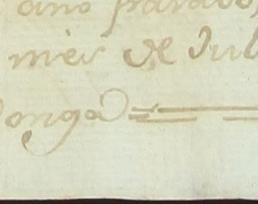 ano pasado
mes de Jul
onga